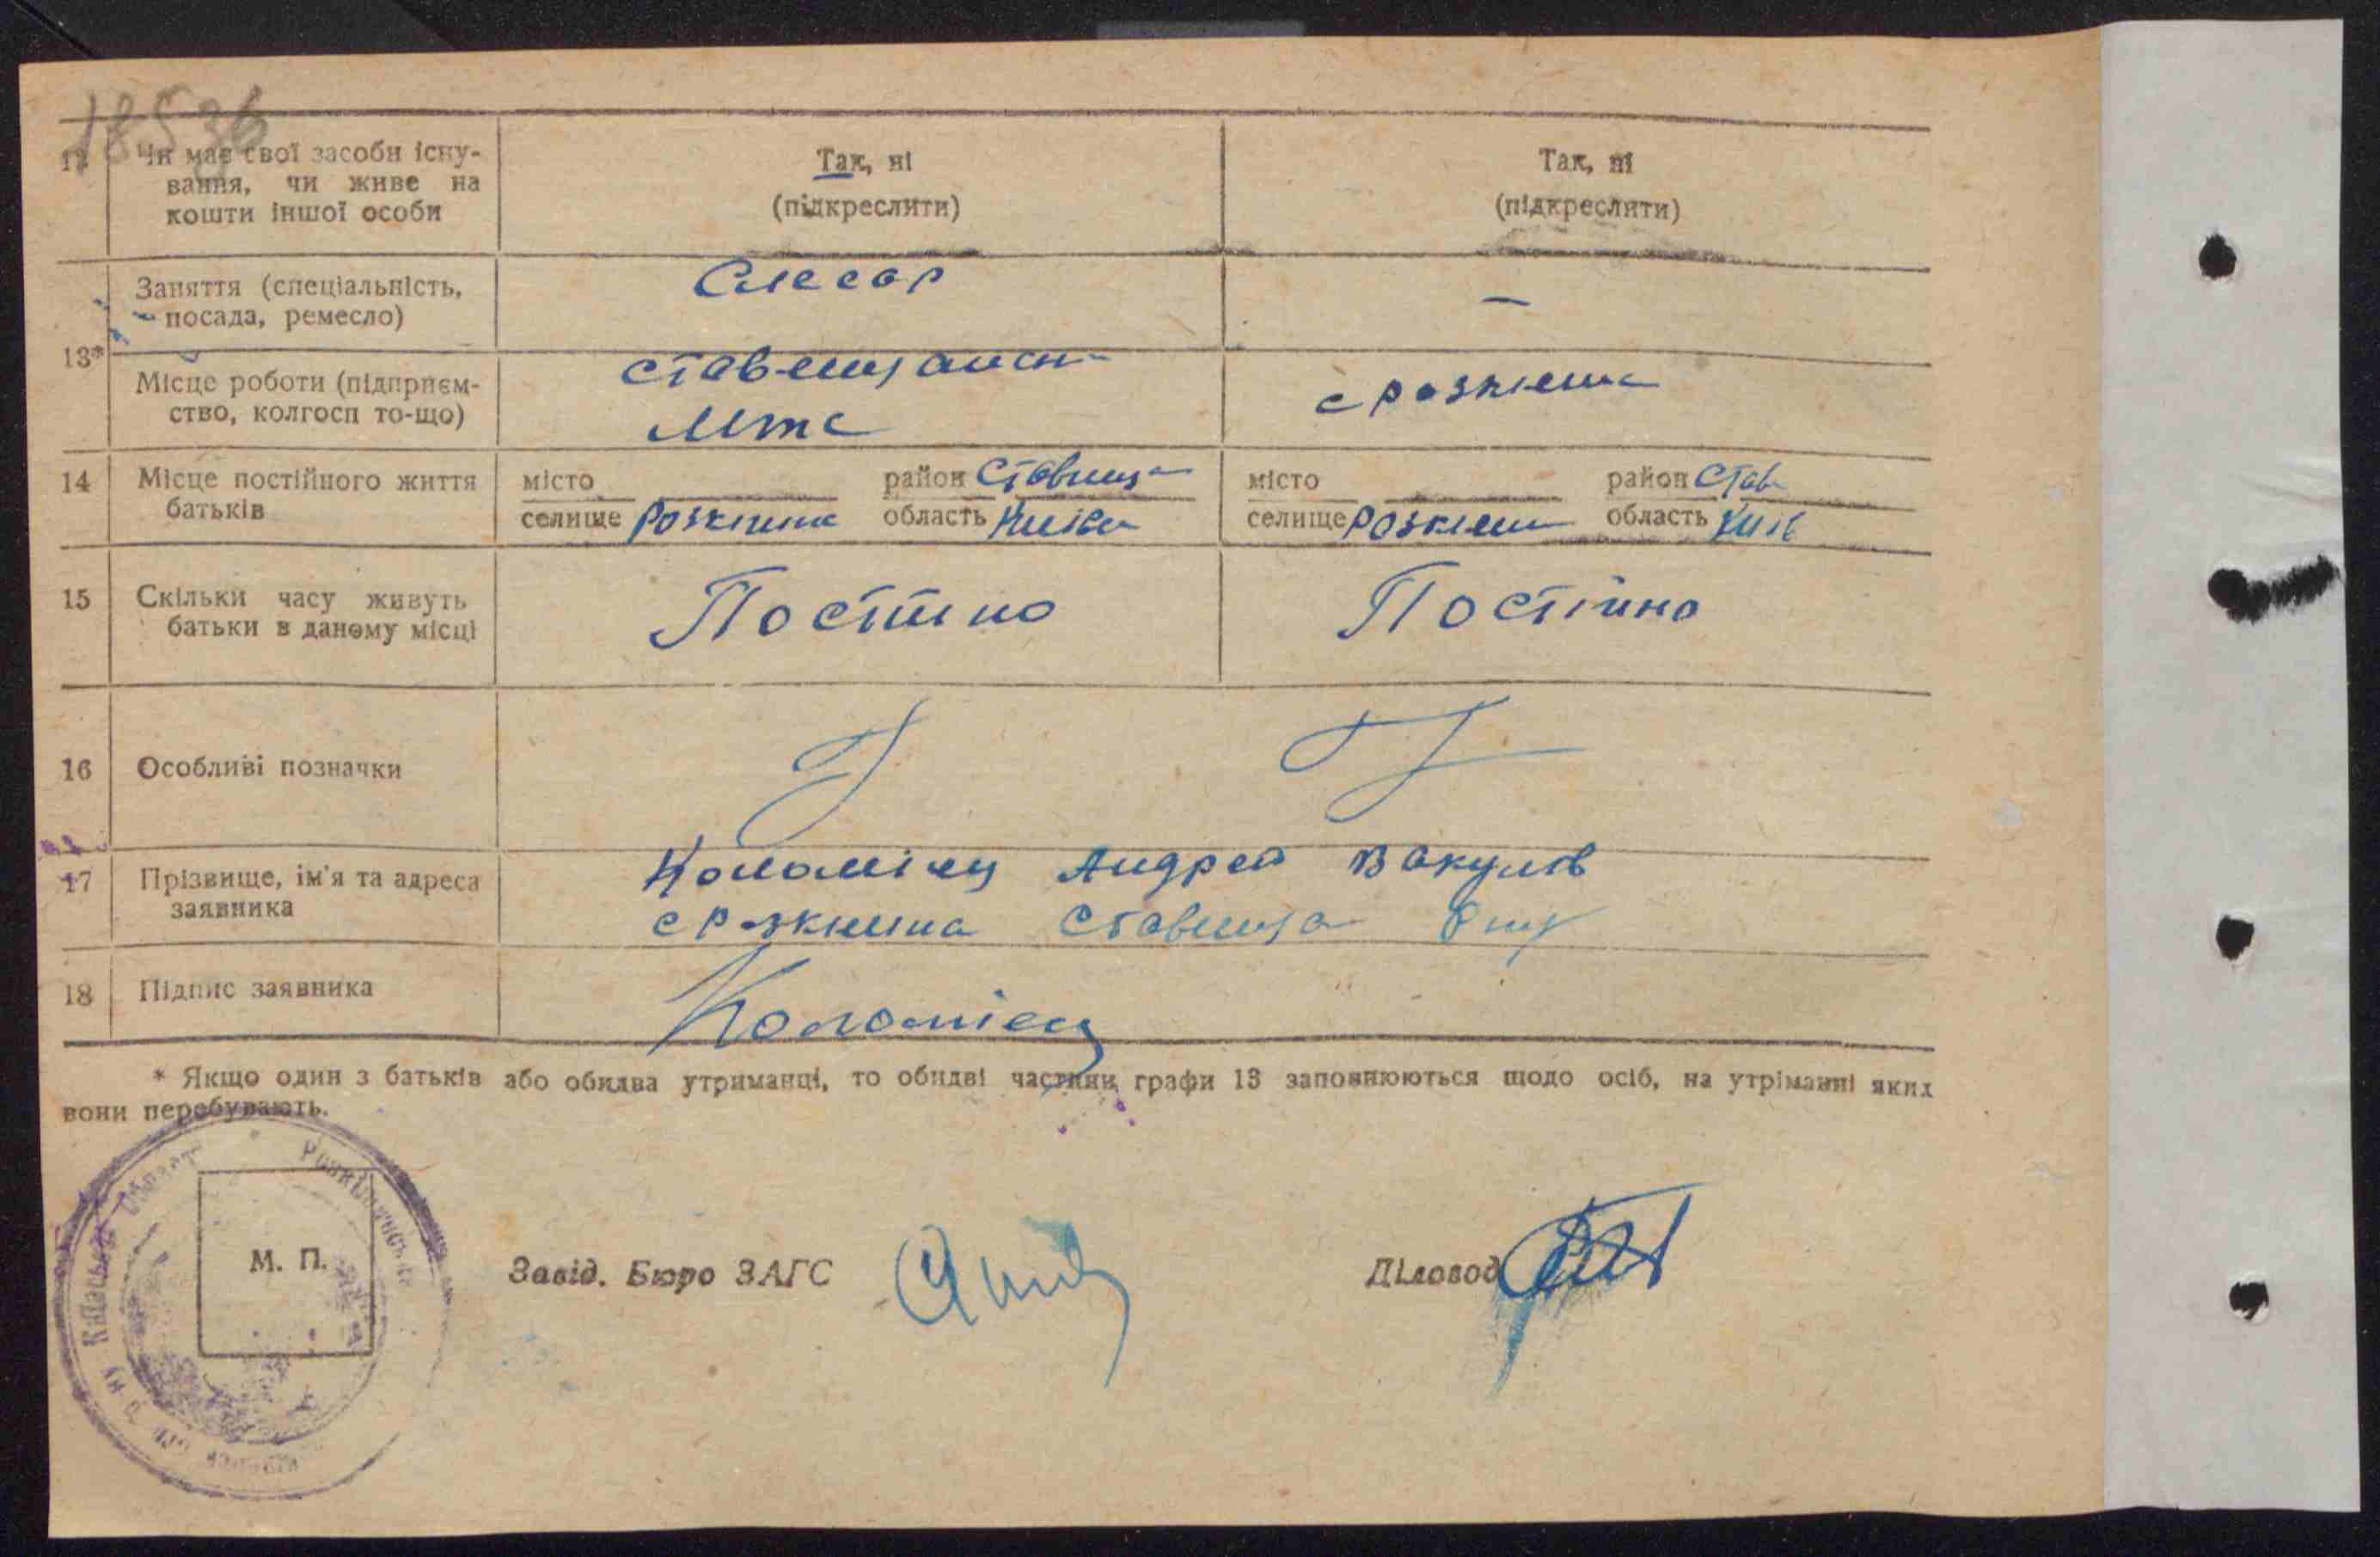 18536
12 Чи має свої засоби існу-
вання, чи живе на
кошти іншої особи
Так, ні
(підкреслити)
Так, ні
(підкреслити)
13*
Заняття (спеціальність,
посада, ремесло)
Слесар
—
Місце роботи (підприєм-
ство, колгосп то-що)
Мтс
14 Місце постійного життя
батьків
місто район Ставищ
селище Розкішна область Київ
місто район Став
селище Розкішн область Київ
15 Скільки часу живуть
батьки в даному місці
Постійно
Постійно
16 Особливі позначки
17 Прізвище, ім'я та адреса
заявника
Коломієц Андрей Вакулов
с Розкішна Ставища
18 Підпис заявника
Коломієц
* Якщо один з батьків або обидва утриманці, то обидві частини графи 13 заповнюються щодо осіб, на утріманні яких
вони перебувають.
М. П.
Завід. Бюро ЗАГС
Діловод